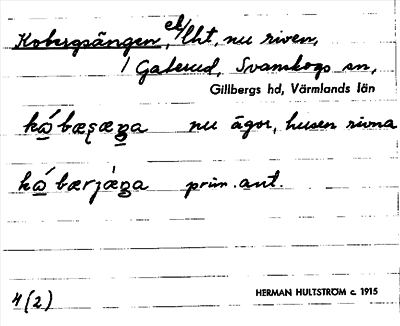 Kobergsängen, el. lht, nu riven,
/ Gaterud, Svanskogs sn,
Gillbergs hd, Värmlands län
nu ägor, husen rivna
prim. ant.
4(2)
HERMAN HULTSTRÖM c. 1915